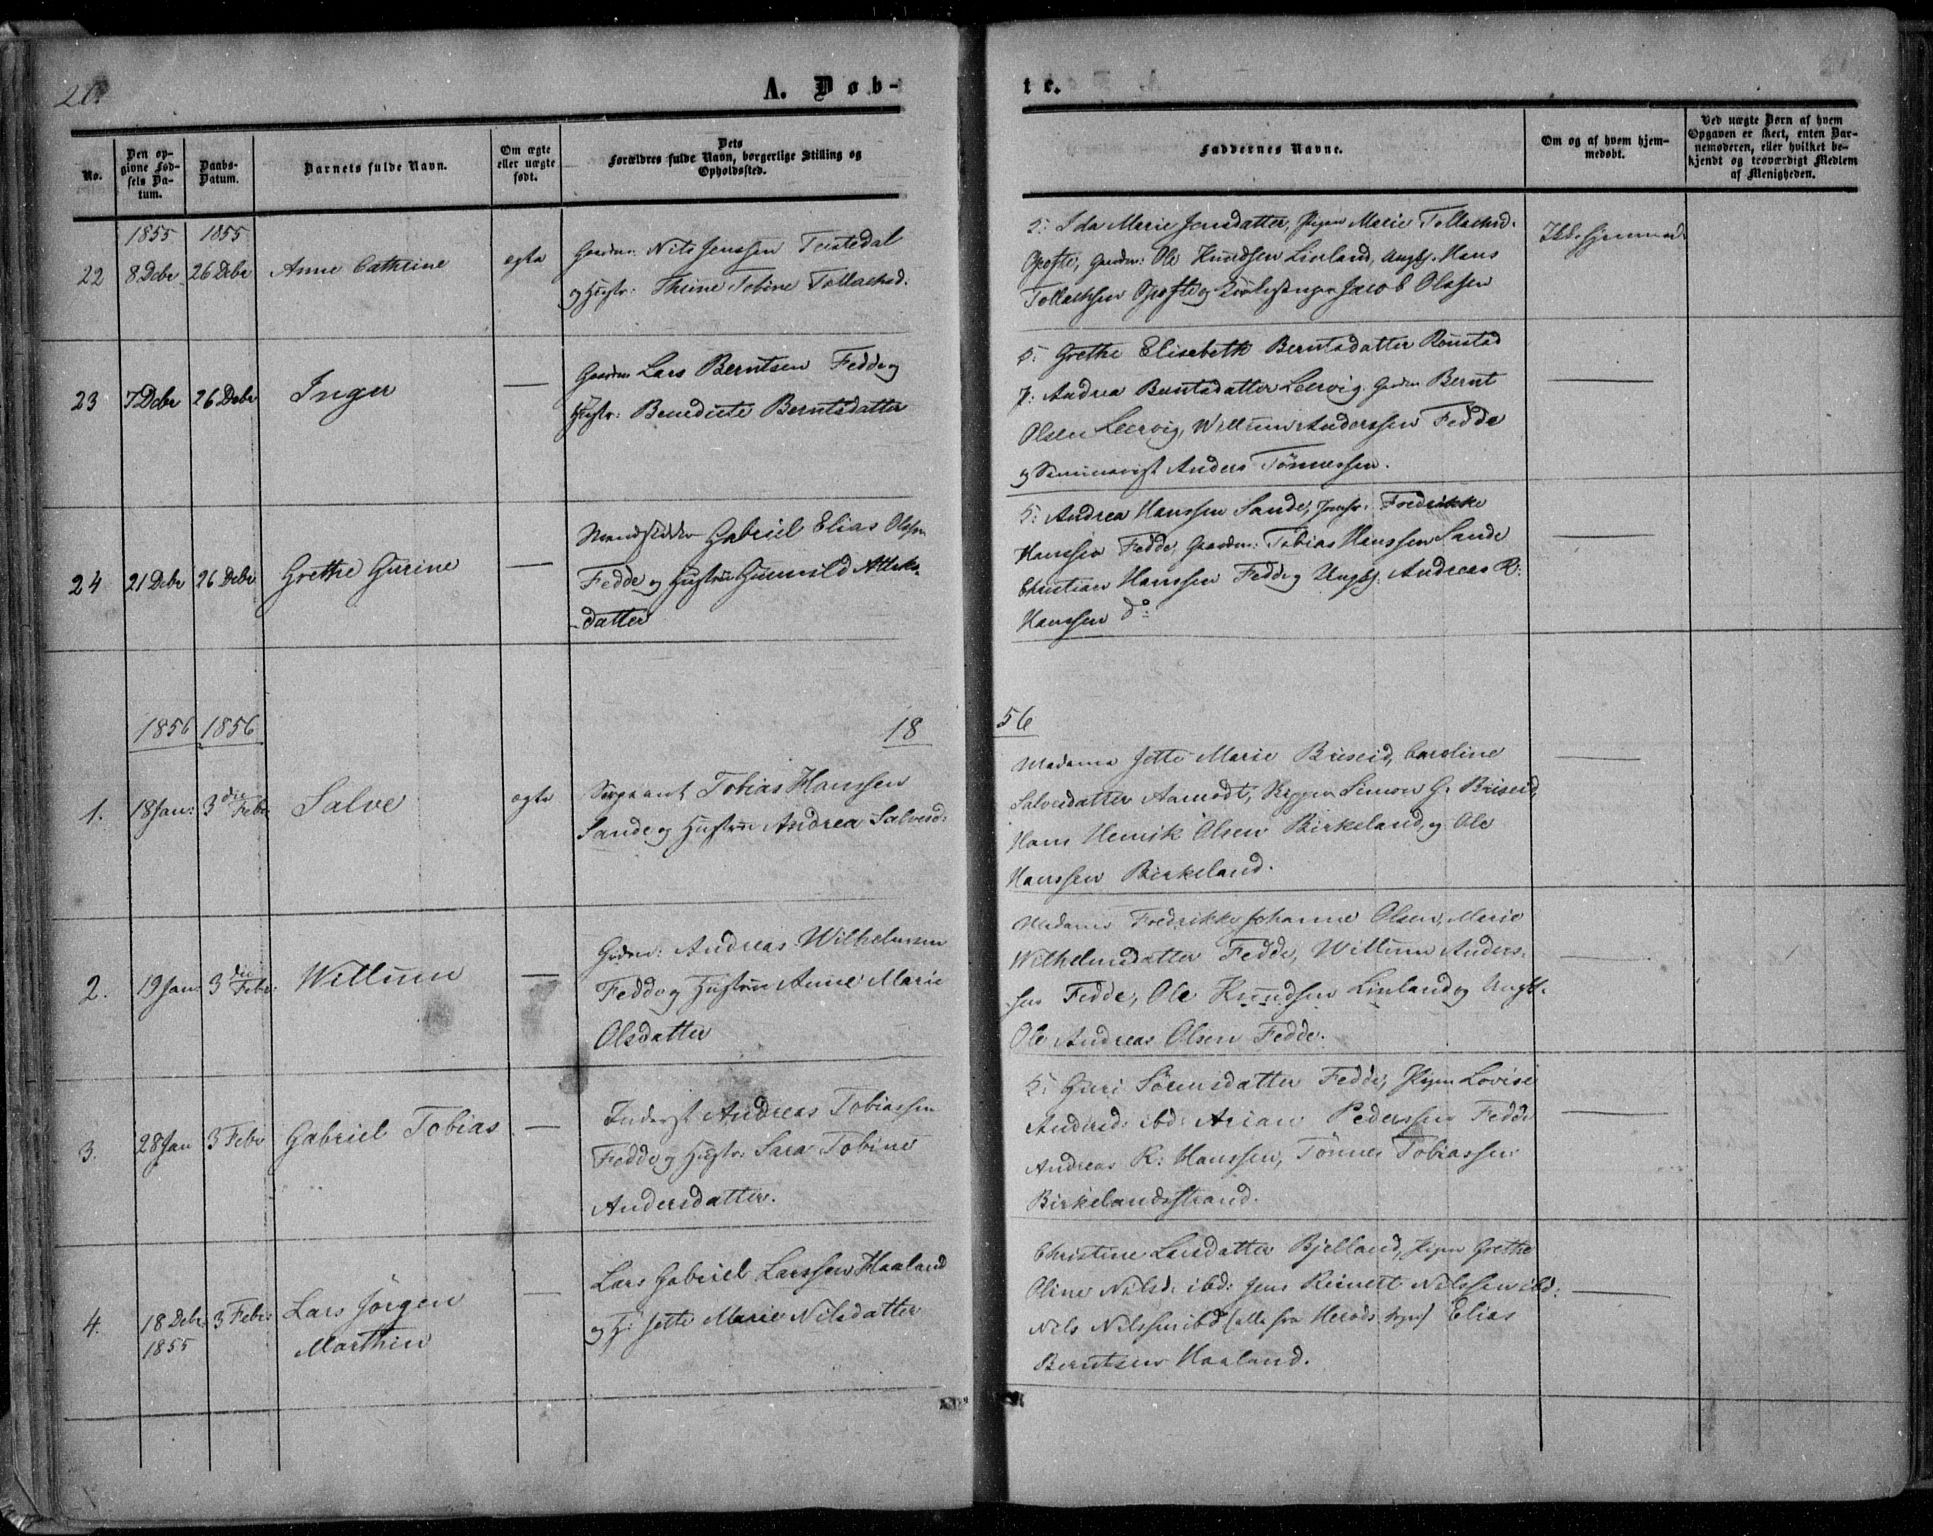 20.
A. Døb-
te.
No.
Den op-
givne Fød-
sels Da-
tum.
Daabs-
Datum.
Barnets fulde Navn.
Om ægte
eller uægte
født.
Dets
Forældres fulde Navn, borgerlige Stilling og
Opholdssted.
Faddernes Navne.
Om og af hvem hjem-
medøbt.
Ved uægte Børn af hvem
Opgaven er skeet, enten Bar-
nemoderen, eller hvilket be-
kjendt og troværdigt Medlem
af Menigheden.
1855 1855
22 8 Debr 26 Debr Anne Cathrine ægte
Gaardm: Nils Jenssen Teistedal
og Hustr: Thrine Tobine Tollachsd.
Ida Marie Jensdatter, Pigen Marie Tollachsd.
Opofte, Gaardm: Ole Knudsen Linland, Ungk. Hans
Tollachsen Opofte og Jacob Olssen
Ikke hjemmed.
23 7 Debr 26 Debr Inger —
Gaardm Lars Berntsen Fedde og
Hustr: Benedicte Berntsdatter
H: Grethe Elisabeth Berntsdatter Rønstad
P: Andrea Berntsdatter Leervig, Gaardm Bernt
Olsen Leervig, Willum Anderssen Fedde
og Seminarist Anders Tønnessen.
24 21 Debr 26 Debr Grethe Gurine —
Gabriel Elias Olssen
Fedde og Hustrue Gunvild Atlaks-
datter
H: Andrea Hanssen Sande, Jomfr: Fredrikke
Hanssen Fedde, Gaardm: Tobias Hanssen Sande
Christian Hanssen Fedde og Ungk. Andreas R:
Hanssen do:
1856 1856
18
56
1. 18 Jan: 3die Febr. Salve ægte
Sergeant Tobias Hanssen
Sande og Hustrue Andrea Salvesd:
Madame Jette Marie Briseid, Caroline
Salvesdatter Aamodt, Simon G. Briseid,
Hans Henrik Olsen Birkeland, og Ole
Hanssen Birkeland.
2. 19 Jan: 3die Febr: Willum —
Grdm: Andreas Wilhelmsen
Fedde og Hustrue Anne Marie
Olsdatter
Madame Fredrikke Johanne Olsen, Marie
Wilhelmsdatter Fedde, Willum Anders-
sen Fedde, Ole Knudsen Linland og Ungk.
Ole Andreas Olsen Fedde.
3. 28 Jan 3 Febr Gabriel Tobias —
Inderst Andreas Tobiassen
Fedde og Hustr: Sara Tobine
Andersdatter.
H: Guri Sørensdatter Fedde, Pigen Lovise
Andersd: ibd: Arian Pederssen Fedde
Andreas R: Hanssen, Tønnes Tobiassen
Birkelandsstrand.
4. 18 Debr 3 Febr: Lars Jørgen —
1855 Marthin
Lars Gabriel Larssen Haaland
og H: Jette Marie Nilsdatter
Christine Larsdatter Bjelland, Pigen Grethe
Oline Nilsd: ibd: Jens Reinert Nilssen ibd:
Nils Nilssen ibd (alle fra Herods sogn) Elias
Berntsen Haaland.